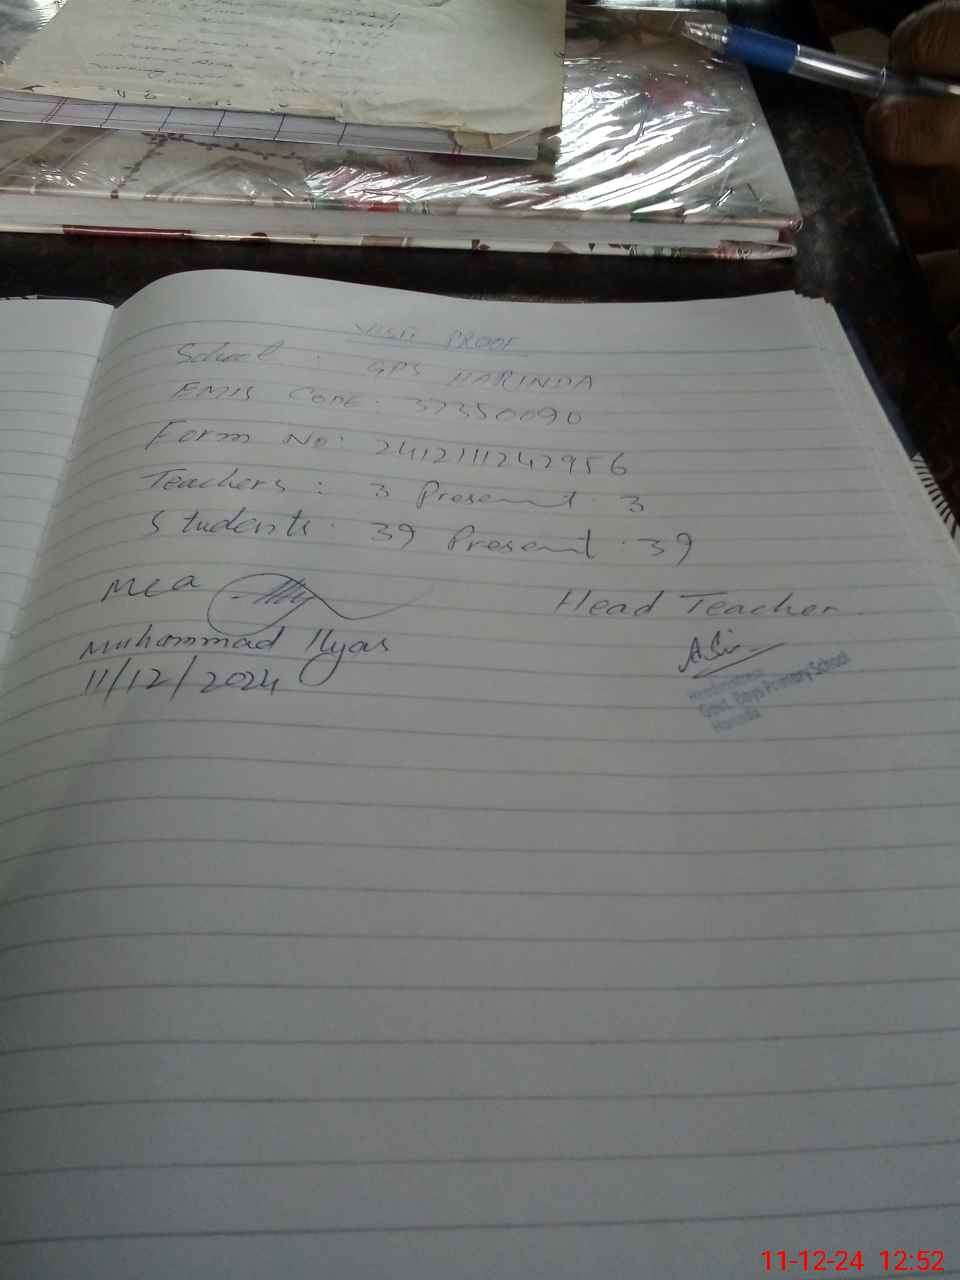 VISIT PROOF
School : GPS HARINDA
EMIS CODE: 37350090
Form No: 2412111242956
Teachers : 3 Present : 3
Students : 39 Present : 39
MEA
Head Teacher
Muhammad Ilyas
11/12/2024
Govt. Boys Primary School
Harinda
11-12-24 12:52